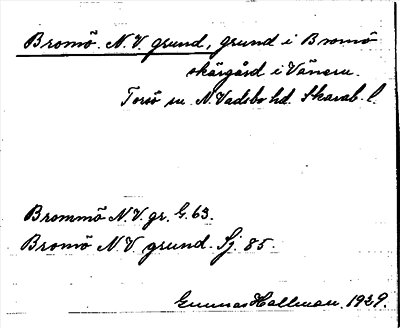 Bromö N.V. grund, grund i Bromö
skärgård i Vänern.
Torsö sn. N. Vadsbo hd. Skarab. l.
Brommö N.V. gr. G. 63.
Bromö N.V. grund. Sj. 85.
Gunnar Hallman. 1929.